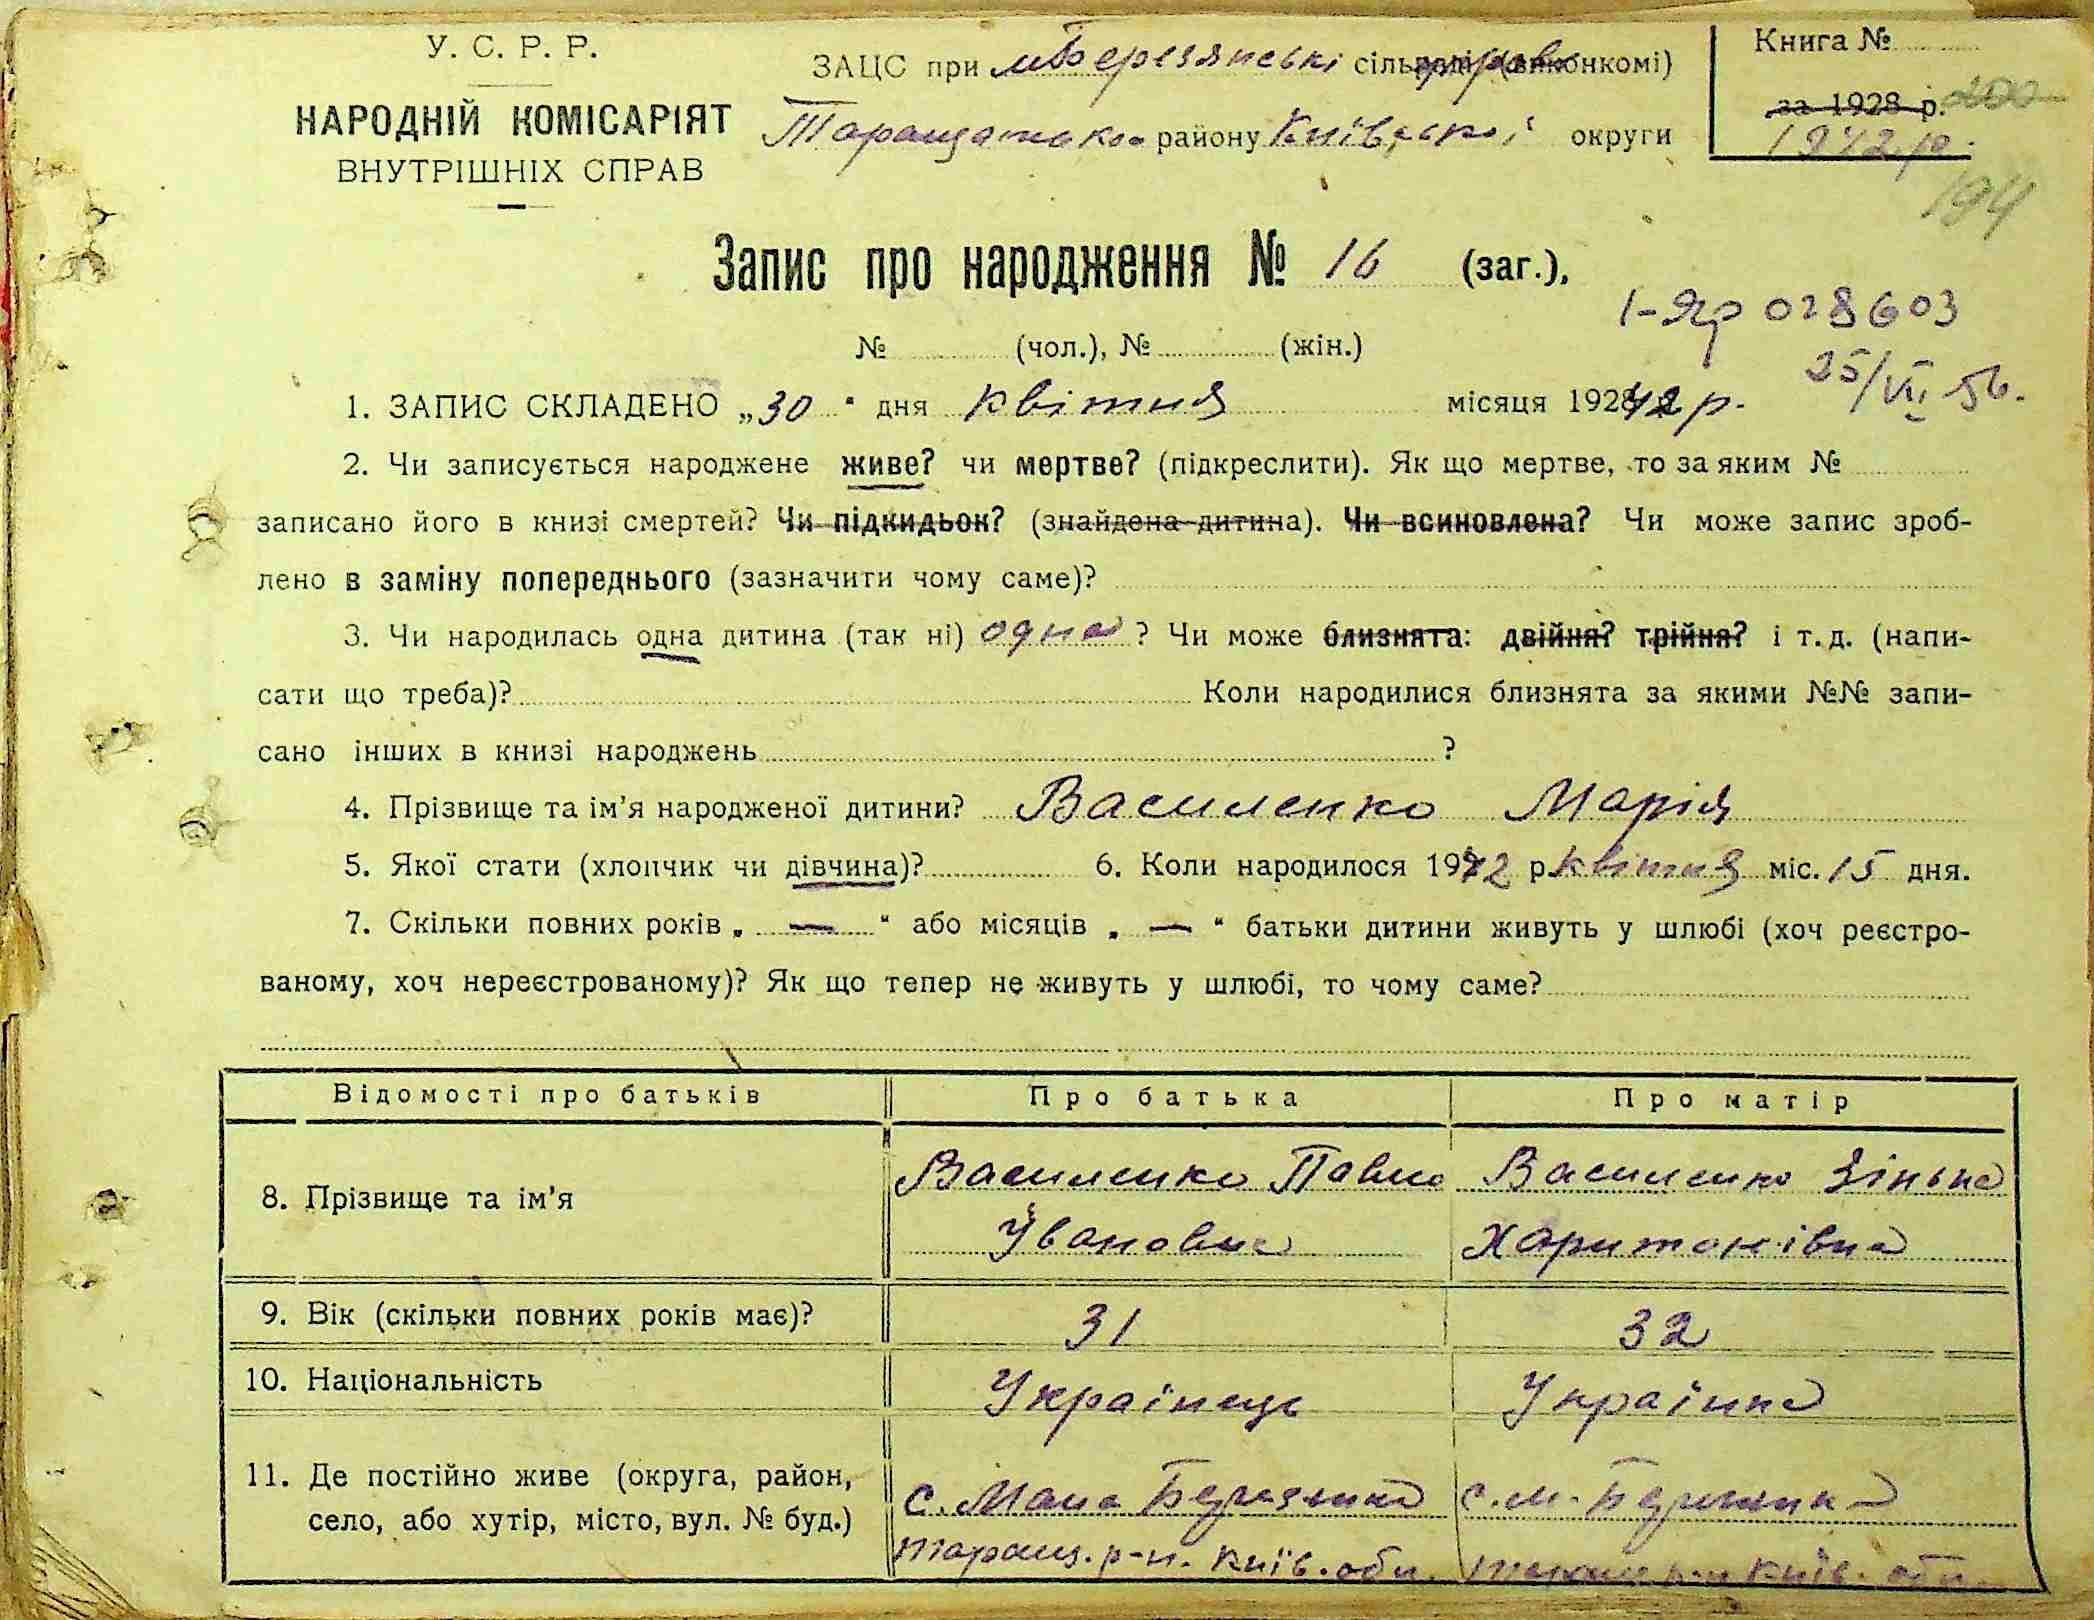 У. С. Р. Р.
НАРОДНІЙ КОМІСАРІЯТ
ВНУТРІШНІХ СПРАВ
ЗАЦС при мБерезянські сільраді (виконкомі)
Таращанського району Київської округи
Книга №
за 1928 р. 200
1942 р.
194
Запис про народження № 16 (заг.),
1-Яр 028603
№ (чол.), № (жін.)
25/VII 56.
1. ЗАПИС СКЛАДЕНО „30" дня квітня місяця 192842 р.
2. Чи записується народжене живе? чи мертве? (підкреслити). Як що мертве, то за яким №
записано його в книзі смертей? Чи підкидьок? (знайдена дитина). Чи всиновлена? Чи може запис зроб-
лено в заміну попереднього (зазначити чому саме)?
3. Чи народилась одна дитина (так ні) одна? Чи може близнята: двійня? трійня? і т. д. (напи-
сати що треба)? Коли народилися близнята за якими №№ запи-
сано інших в книзі народжень ?
4. Прізвище та ім'я народженої дитини? Василенко Марія
5. Якої стати (хлопчик чи дівчина)? 6. Коли народилося 1942 р. квітня міс. 15 дня.
7. Скільки повних років „ — " або місяців „ — " батьки дитини живуть у шлюбі (хоч реєстро-
ваному, хоч нереєстрованому)? Як що тепер не живуть у шлюбі, то чому саме?
Відомості про батьків Про батька Про матір
8. Прізвище та ім'я Василенко Павло Василенко Зінька
Іванович Харитонівна
9. Вік (скільки повних років має)? 31 32
10. Національність Українець Українка
11. Де постійно живе (округа, район,
село, або хутір, місто, вул. № буд.)
с. Мала Березянка с. М. Березянка
Таращ. р-н. Київ. обл. Таращ. р-н Київ. обл.